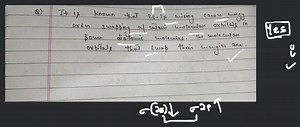 Q) It is known that 2s-2p mixing causes energy
order swapping of certain molecular orbitals in
some diatomic molecules, the molecular
orbitals that swap their energies are
Yes
σ(2s)↓ σ2p↑